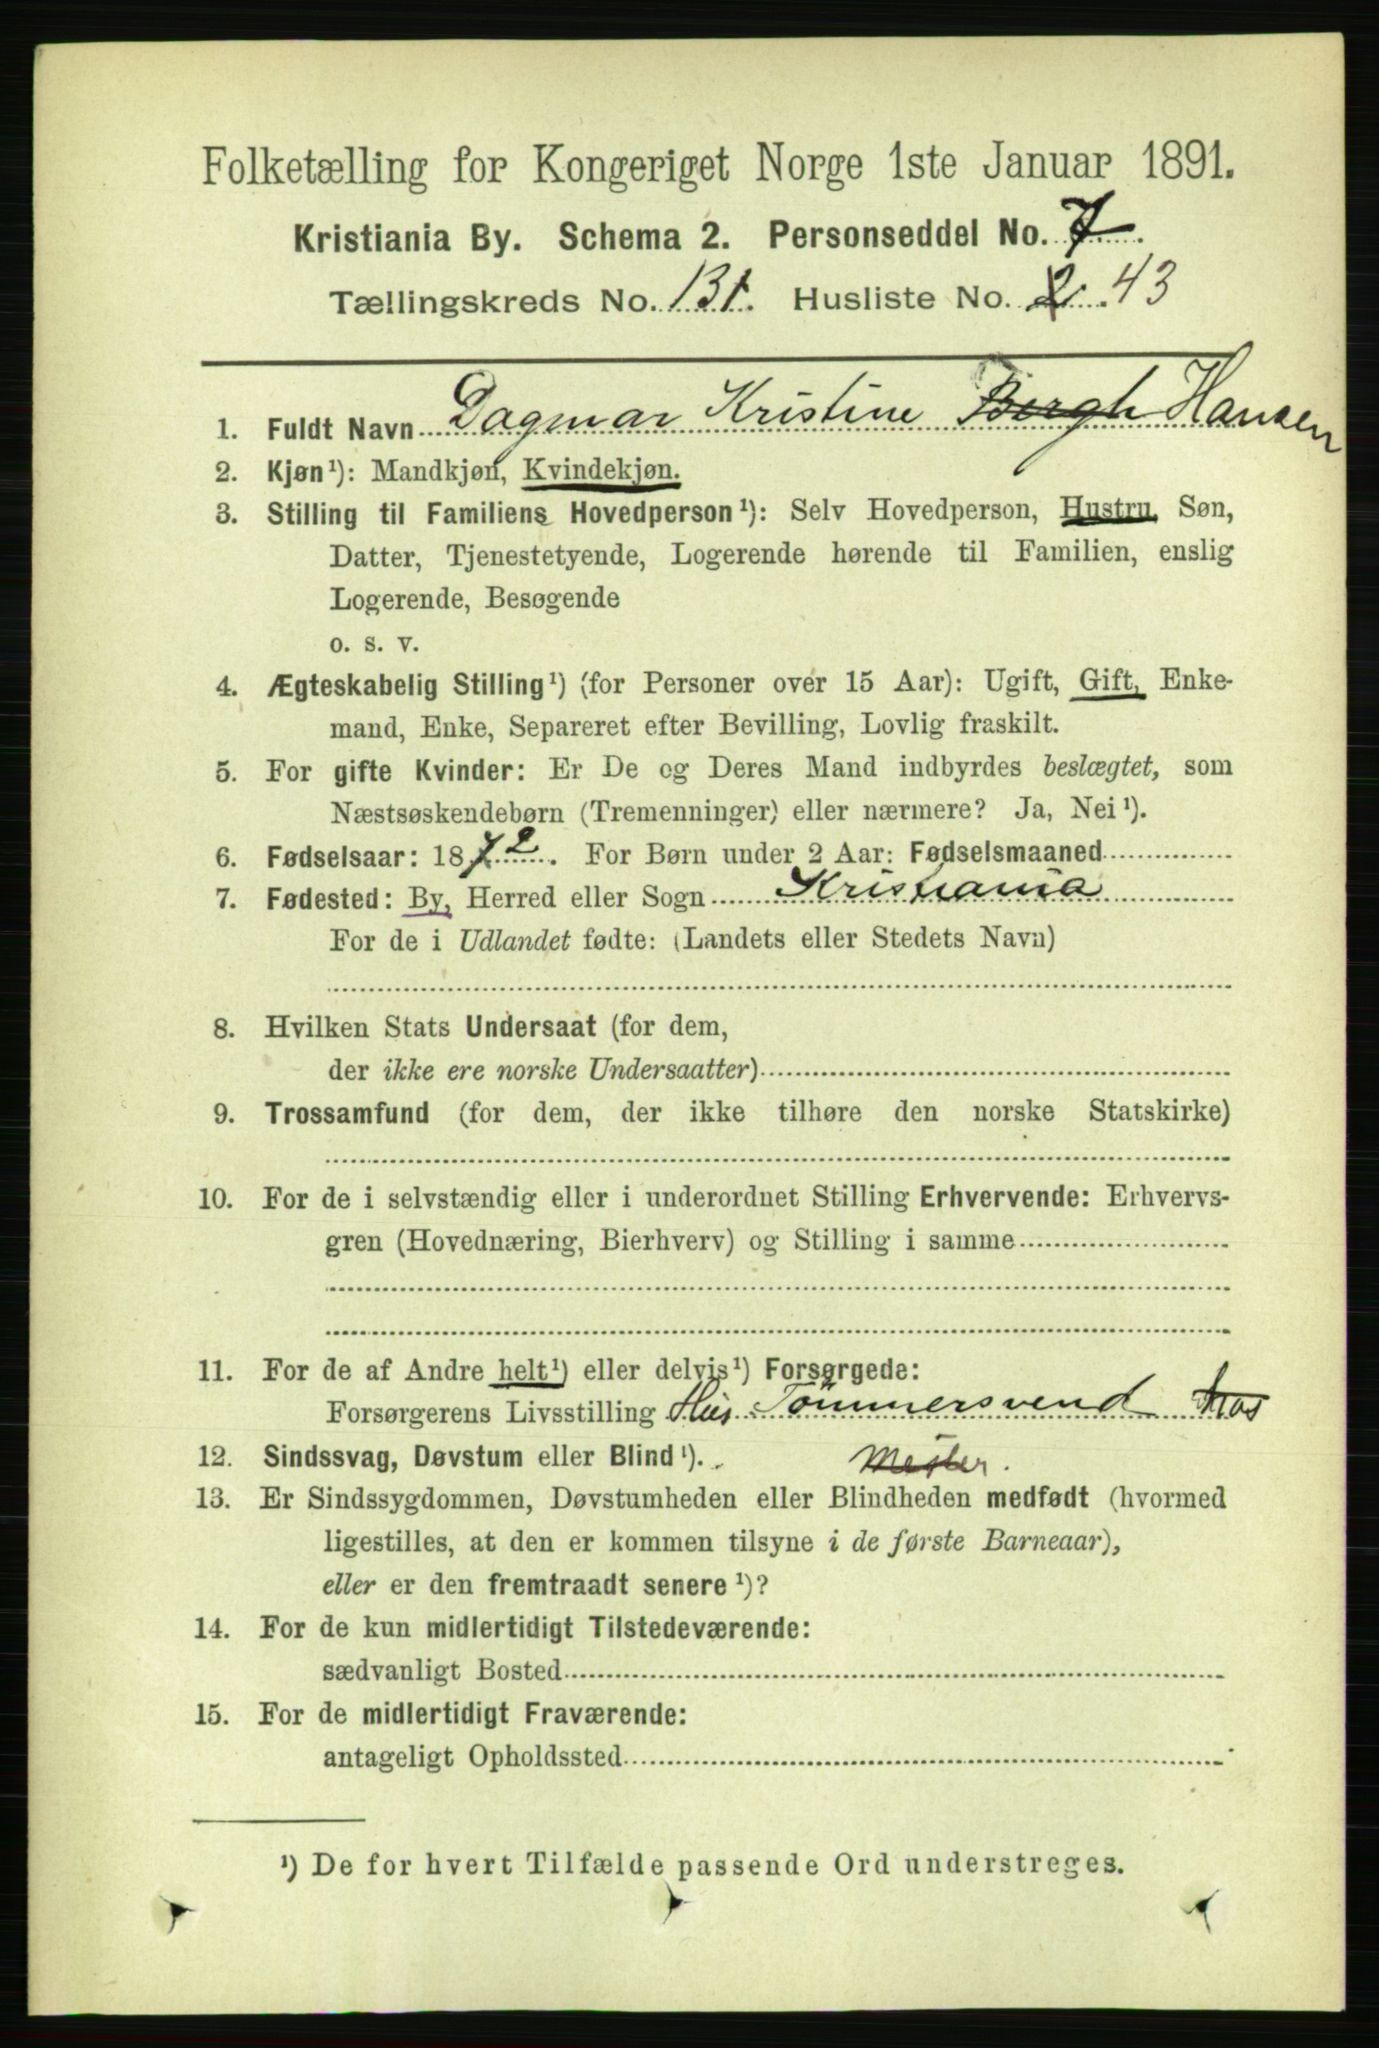 Folketælling for Kongeriget Norge 1ste Januar 1891.
Kristiania By. Schema 2. Personseddel No. 7.
Tællingskreds No. 131. Husliste No. 2 43
1. Fuldt Navn Dagmar Kristine Bergh Hansen
2. Kjøn¹): Mandkjøn, Kvindekjøn.
3. Stilling til Familiens Hovedperson¹): Selv Hovedperson, Hustru, Søn,
Datter, Tjenestetyende, Logerende hørende til Familien, enslig
Logerende, Besøgende
o. s. v.
4. Ægteskabelig Stilling¹) (for Personer over 15 Aar): Ugift, Gift, Enke-
mand, Enke, Separeret efter Bevilling, Lovlig fraskilt.
5. For gifte Kvinder: Er De og Deres Mand indbyrdes beslægtet, som
Næstsøskendebørn (Tremenninger) eller nærmere? Ja, Nei¹).
6. Fødselsaar: 1872. For Børn under 2 Aar: Fødselsmaaned
7. Fødested: By, Herred eller Sogn Kristiania
For de i Udlandet fødte: (Landets eller Stedets Navn)
8. Hvilken Stats Undersaat (for dem,
der ikke ere norske Undersaatter)
9. Trossamfund (for dem, der ikke tilhøre den norske Statskirke)
10. For de i selvstændig eller i underordnet Stilling Erhvervende: Erhvervs-
gren (Hovednæring, Bierhverv) og Stilling i samme
11. For de af Andre helt¹) eller delvis¹) Forsørgede:
Forsørgerens Livsstilling Hus Tømmersvend
12. Sindssvag, Døvstum eller Blind¹). Mester.
13. Er Sindssygdommen, Døvstumheden eller Blindheden medfødt (hvormed
ligestilles, at den er kommen tilsyne i de første Barneaar),
eller er den fremtraadt senere¹)?
14. For de kun midlertidigt Tilstedeværende:
sædvanligt Bosted
15. For de midlertidigt Fraværende:
antageligt Opholdssted
¹) De for hvert Tilfælde passende Ord understreges.